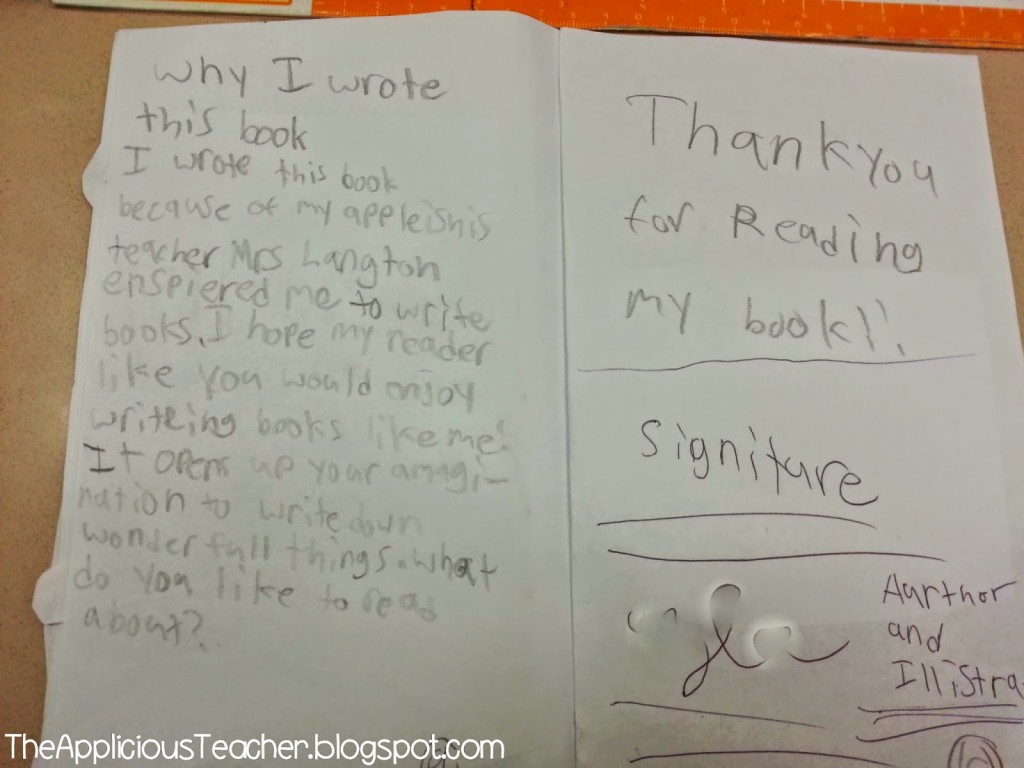 Why I wrote
this book
I wrote this book
because of my appleishis
teacher Mrs Langton
enspiered me to write
books. I hope my reader
like you would enjoy
writeing books like me!
It opens up your amagi-
nation to write down
wonderfull things. what
do you like to read
about?
Thank you
for Reading
my book!!
Signiture
Aurthor
and
Illistra
TheAppliciousTeacher.blogspot.com